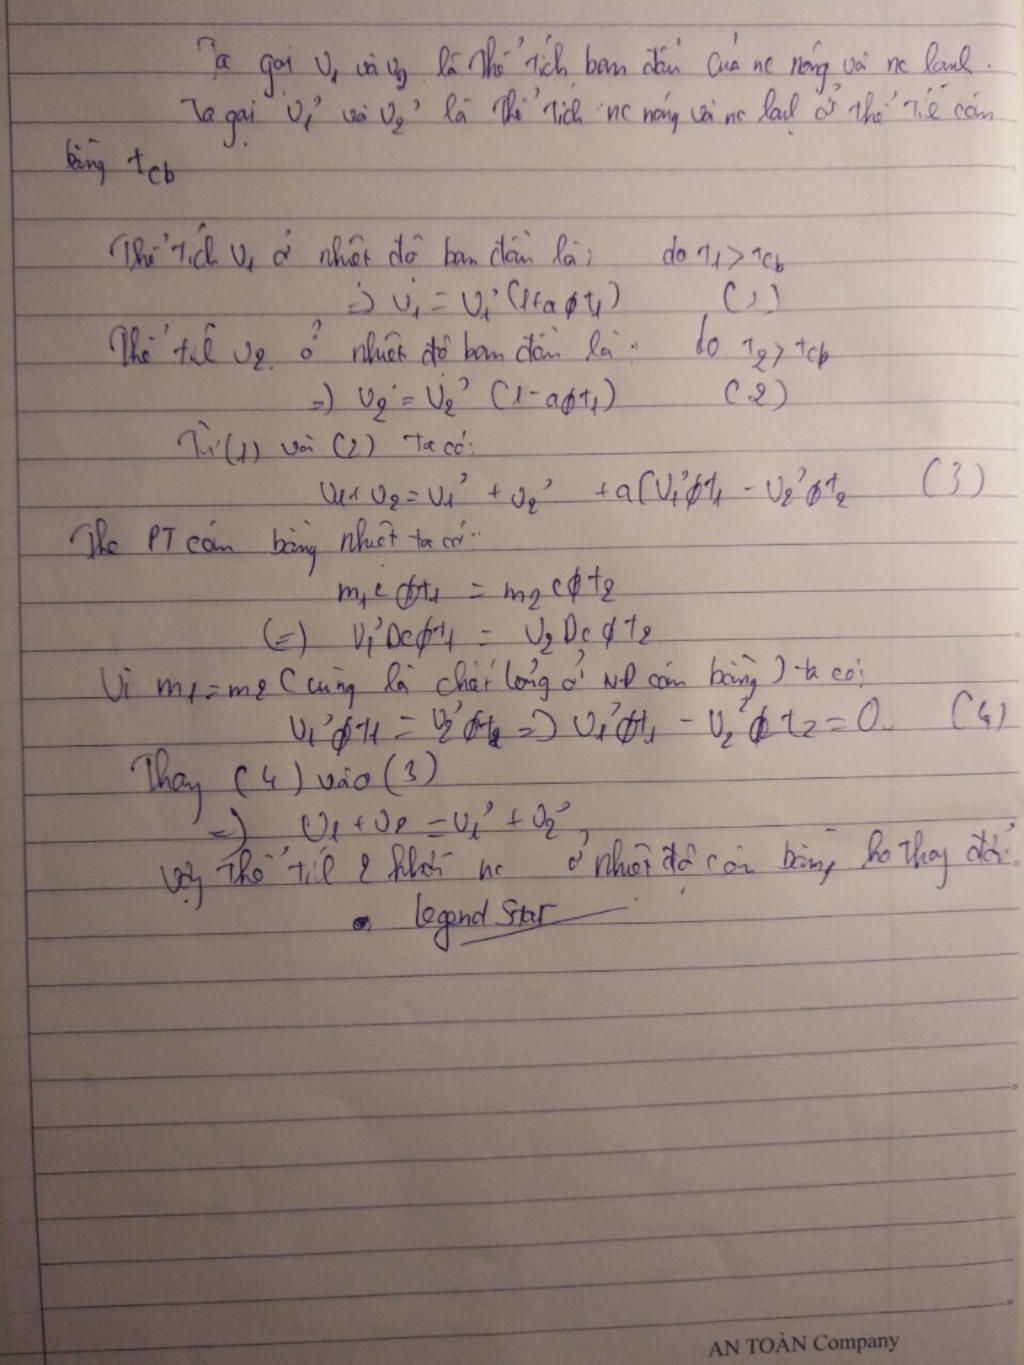 Ta gọi V₁ và V₂ là thể tích ban đầu của nc nóng và nc lạnh.
Ta gọi V₁' và V₂' là thể tích nc nóng và nc lạnh ở thể tích cân
bằng tcb
Thể tích V₁ ở nhiệt độ ban đầu là: do t₁ > tcb
=> V₁ = V₁' (1+a∅t₁) (1)
Thể tích V₂ ở nhiệt độ ban đầu là: do t₂ > tcb
=> V₂ = V₂' (1-a∅t₁) (2)
Từ (1) và (2) ta có:
V₁+V₂ = V₁' + V₂' + a(V₁'∅t₁ - V₂'∅t₂ (3)
Theo PT cân bằng nhiệt ta có:
m₁c∅t₁ = m₂c∅t₂
(=) V₁'Dc∅t₁ = V₂Dc∅t₂
Vì m₁=m₂ (cùng là chất lỏng ở NĐ cân bằng) ta có:
V₁'∅t₁ = V₂'∅t₂ => V₁'∅t₁ - V₂'∅t₂ = 0 (4)
Thay (4) vào (3)
=) V₁+V₂ = V₁' + V₂'
Vậy thể tích 2 khối nc ở nhiệt độ cân bằng ko thay đổi.
Legend Star
AN TOÀN Company